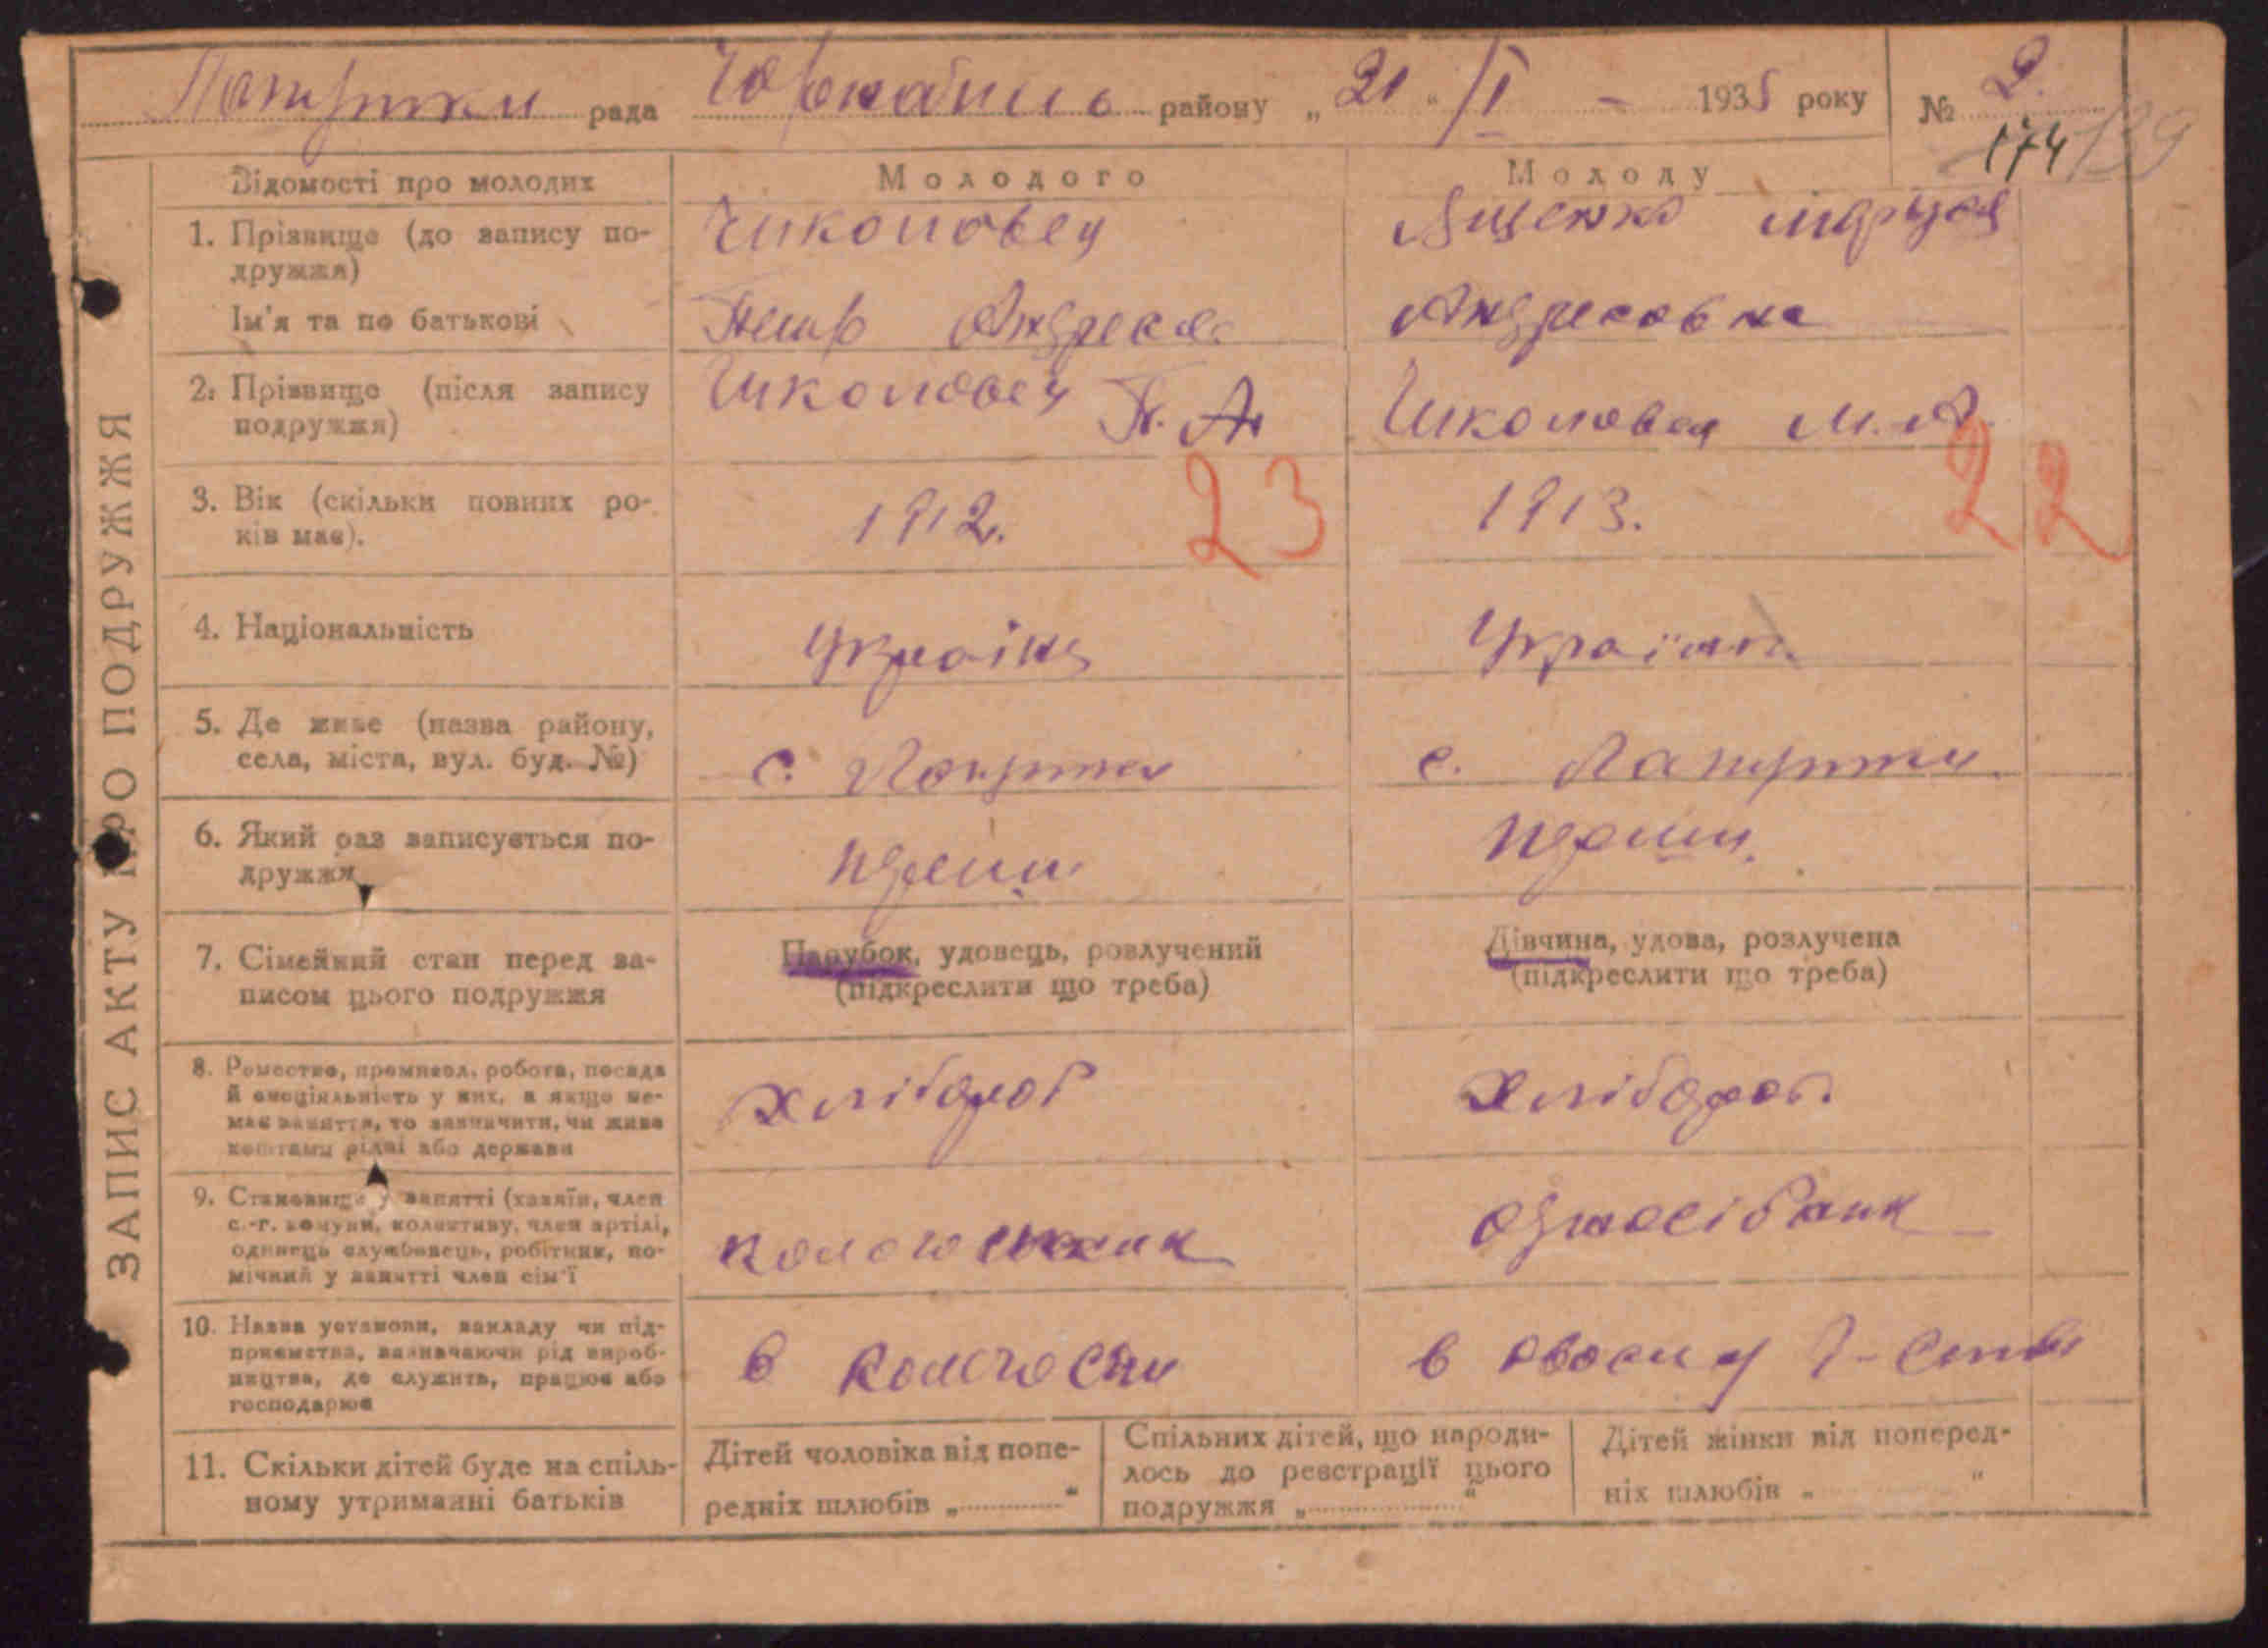 рада району „ 21 " /I - 1935 року № 2.
174 139
ЗАПИС АКТУ ПРО ПОДРУЖЖЯ
Відомості про молодих Молодого Молоду
1. Прізвище (до запису по-
дружжя)
Ященко
Ім'я та по батькові
Андреевна
2. Прізвище (після запису
подружжя)
П. А. М. А.
3. Вік (скільки повних ро-
ків має).
1912. 23 1913. 22
4. Національність
Українц Україн.
5. Де живе (назва району,
села, міста, вул. буд. №)
с. с.
6. Який раз записується по-
дружжя
7. Сімейний стан перед за-
писом цього подружжя
Парубок, удовець, розлучений
(підкреслити що треба)
Дівчина, удова, розлучена
(підкреслити що треба)
8. Ремество, промисел, робота, посада
й спеціяльність у них, а якщо не-
має заняття, то зазначити, чи живе
коштами рідні або держави
хлібороб хлібороб.
9. Становище у занятті (хазяїн, член
с.-г. комуни, колективу, член артілі,
одинець службовець, робітник, по-
мічний у занятті член сім'ї
одноосібник
10. Назва установи, закладу чи під-
приємства, зазначаючи рід вироб-
ництва, де служить, працює або
господарює
в колгоспи в своєму г-стві
11. Скільки дітей буде на спіль-
ному утриманні батьків
Дітей чоловіка від попе-
редніх шлюбів „ "
Спільних дітей, що народи-
лось до реєстрації цього
подружжя „ "
Дітей жінки від поперед-
ніх шлюбів „ "